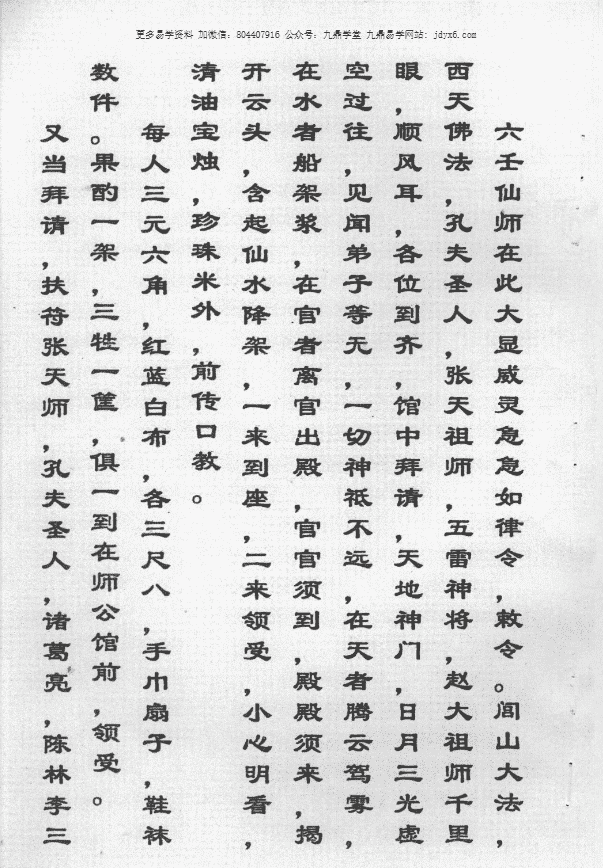 更多易学资料 加微信：804407916 公众号：九鼎学堂 九鼎易学网站：jdyx6.com
六壬仙师在此大显威灵急急如律令，敕令。闾山大法，
西天佛法，孔夫圣人，张天祖师，五雷神将，赵大祖师千里
眼，顺风耳，各位到齐，馆中拜请，天地神门，日月三光虚
空过往，见闻弟子等无，一切神祗不远，在天者腾云驾雾，
在水者船架浆，在官者离官出殿，官官须到，殿殿须来，揭
开云头，含起仙水降架，一来到座，二来领受，小心明看，
清油宝烛，珍珠米外，前传口教。
每人三元六角，红蓝白布，各三尺八，手巾扇子，鞋袜
数件。果酌一架，三牲一筐，俱一到在师公馆前，领受。
又当拜请，扶符张天师，孔夫圣人，诸葛亮，陈林李三